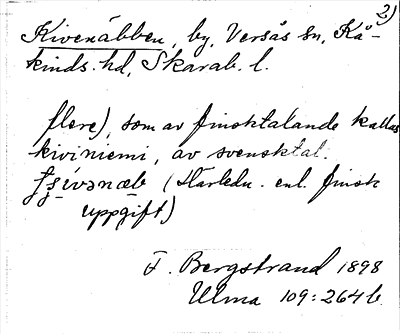 2)
Kivenäbben, by, Versås sn, Kå-
kinds. hd, Skarab. l.
flere), som av finsktalande kallas
kiviniemi, av svensktal.
(Härledn. enl. finsk
uppgift)
F. Bergstrand 1898
Ulma 109:264 b.